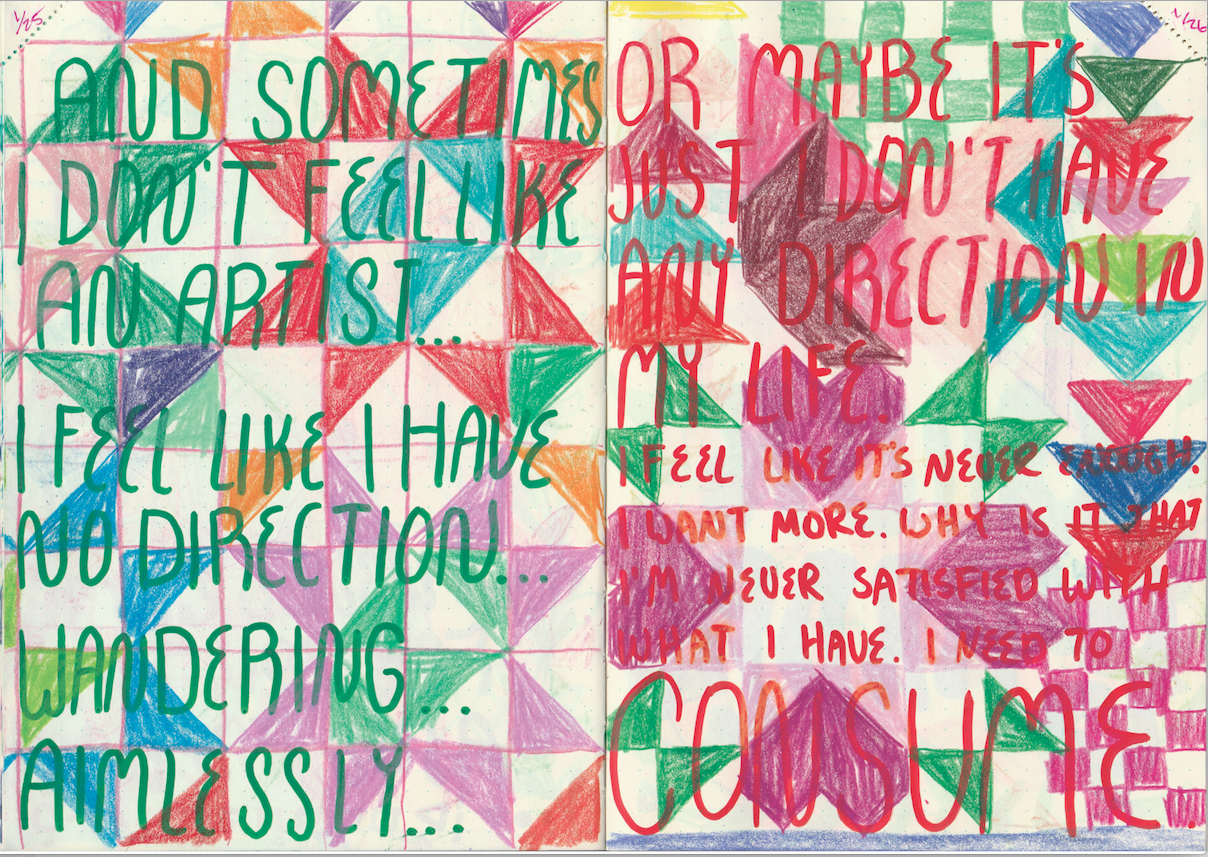 1/25
AND SOMETIMES
I DON'T FEEL LIKE
AN ARTIST...
I FEEL LIKE I HAVE
NO DIRECTION...
WANDERING...
AIMLESSLY...
1/26
OR MAYBE IT'S
JUST I DON'T HAVE
ANY DIRECTION IN
MY LIFE.
I FEEL LIKE IT'S NEVER ENOUGH.
I WANT MORE. WHY IS IT THAT
I'M NEVER SATISFIED WITH
WHAT I HAVE. I NEED TO
CONSUME.